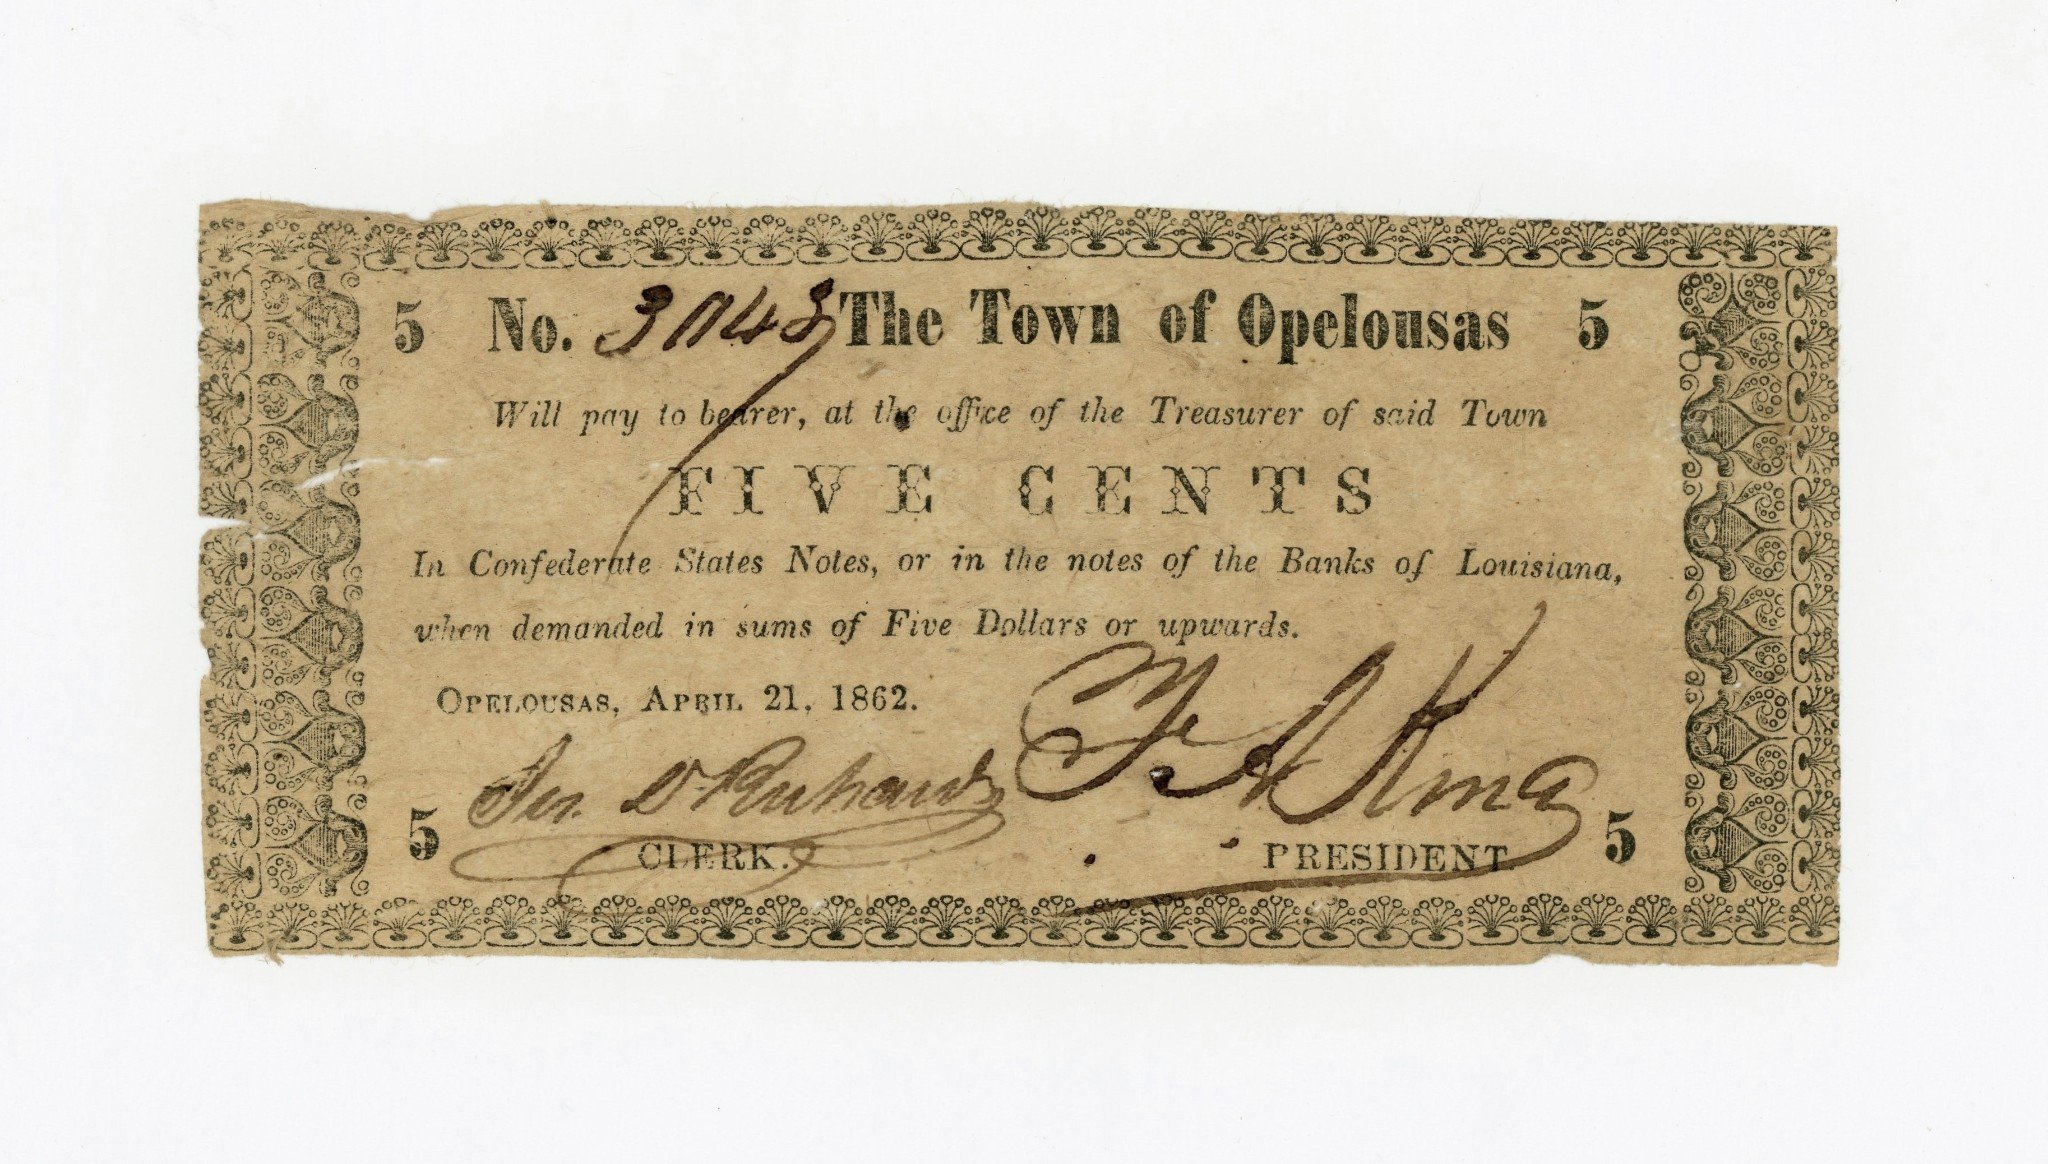 5 No. 3043 The Town of Opelousas 5
Will pay to bearer, at the office of the Treasurer of said Town
FIVE CENTS
In Confederate States Notes, or in the notes of the Banks of Louisiana,
when demanded in sums of Five Dollars or upwards.
OPELOUSAS, APRIL 21, 1862.
5 CLERK. PRESIDENT. 5